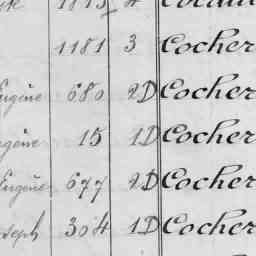 1181 3 Cocher
Eugène 680 2D Cocher
ugène 15 1D Cocher
Eugène 677 2D Cocher
oseph 304 1D Cocher